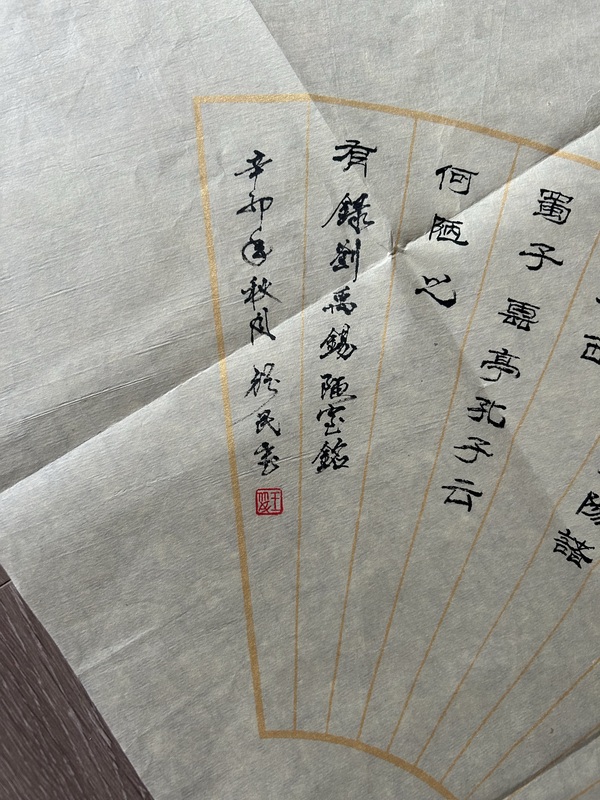 西
陽諸
蜀子雲亭孔子云
何陋之
有錄劉禹錫陋室銘
辛卯年秋月 民書